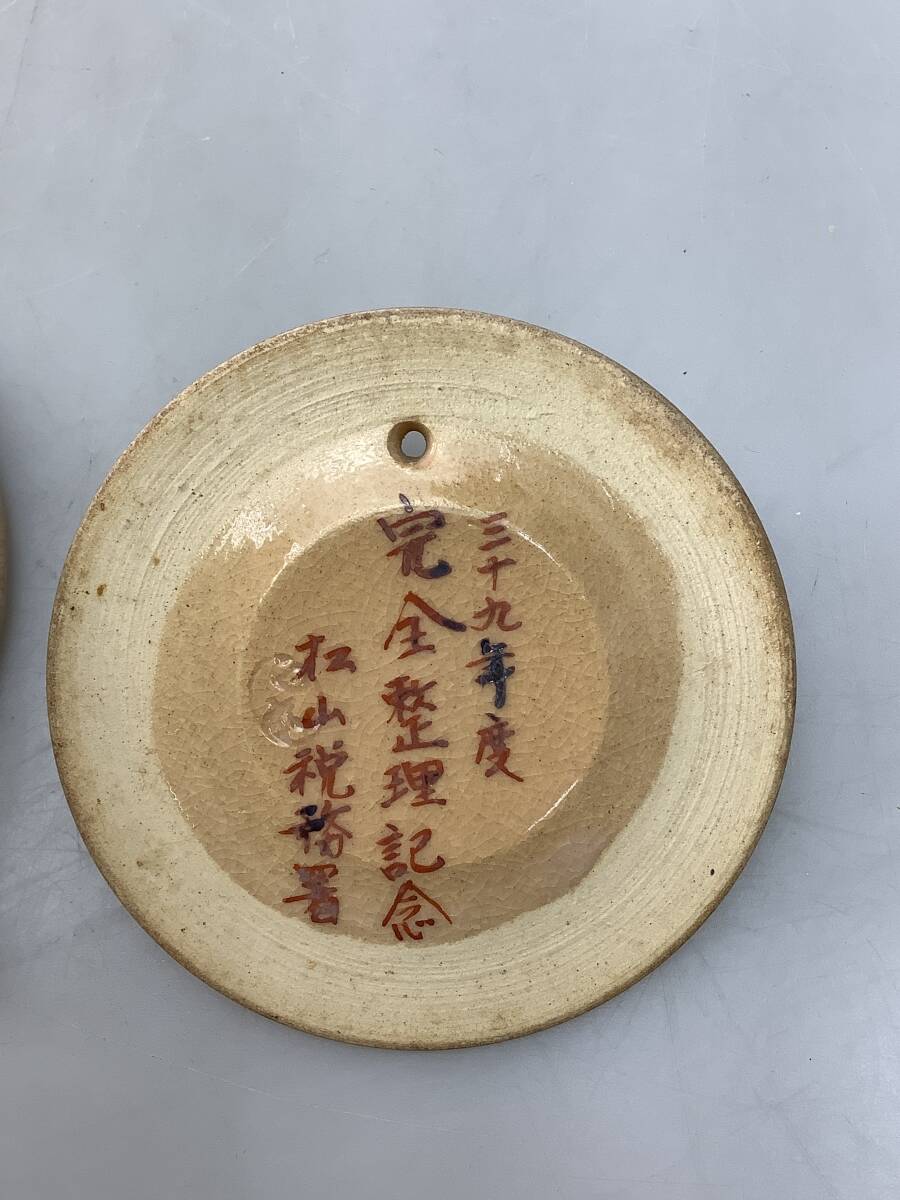 三十九年度
完全整理記念
松山税務署